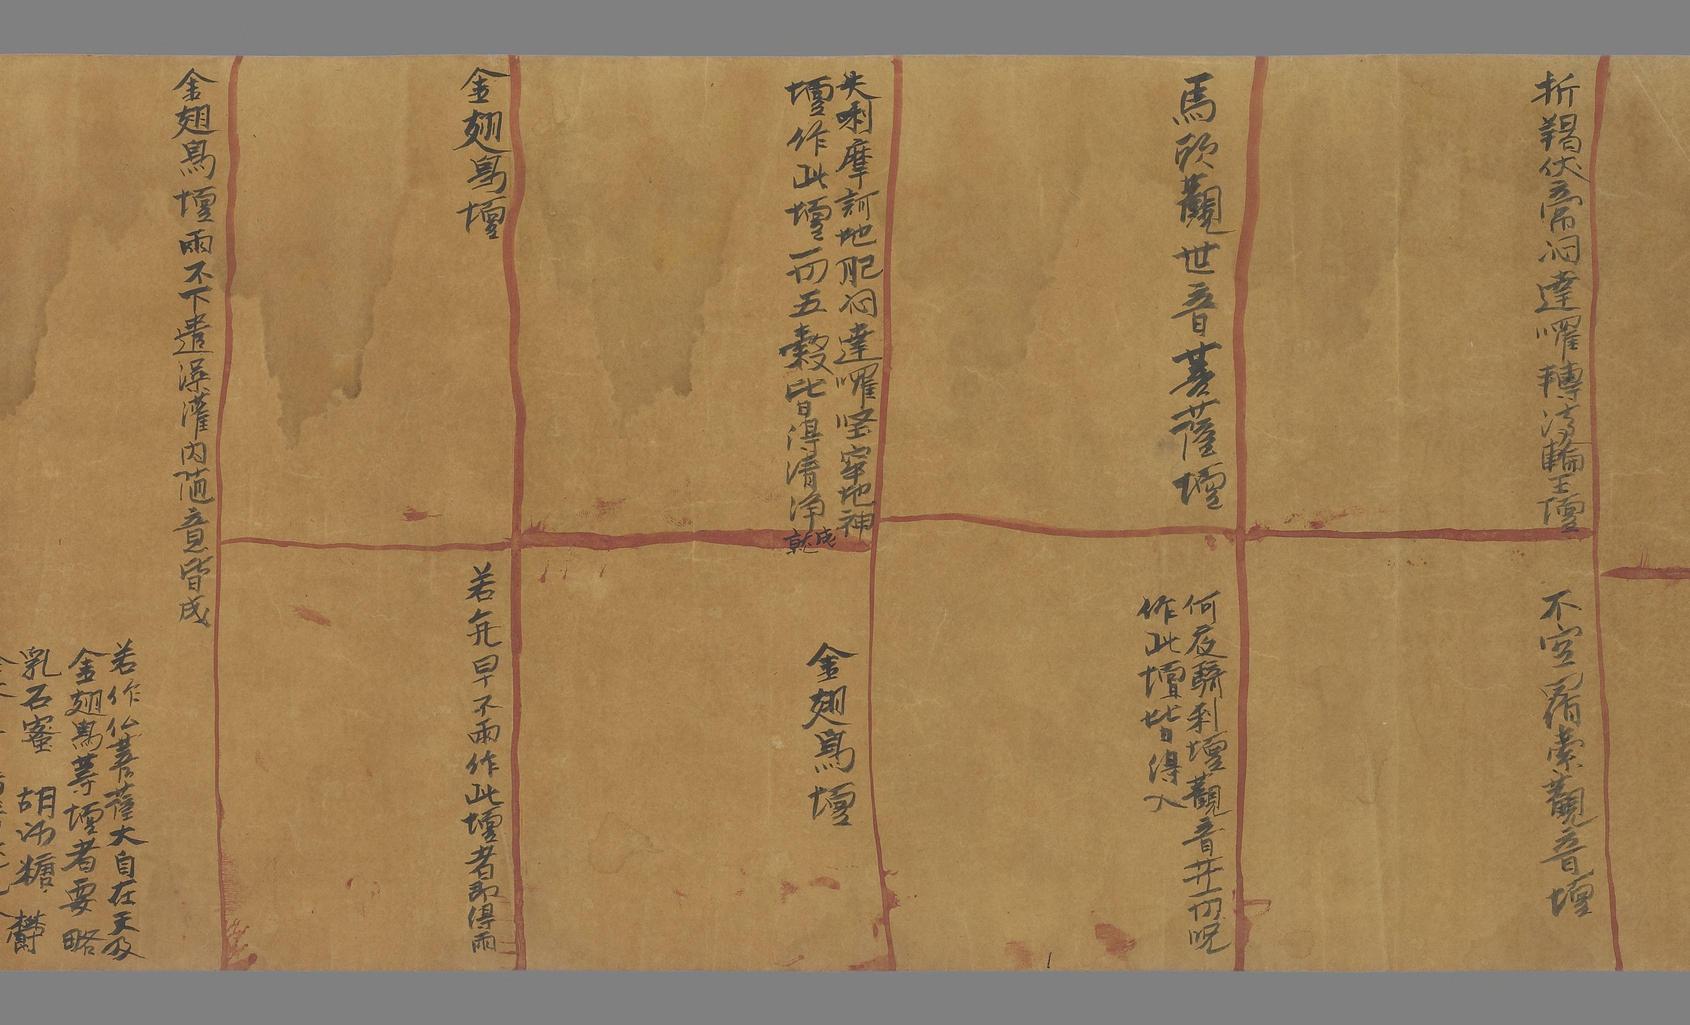 折羯伏帝泅達囉轉法輪王壇
不空罥索觀音壇
馬頭觀世音菩薩壇
何夜騎利壇觀音并一切呪
作此壇皆得入
失唎摩訶地肥泅達囉堅牢地神
壇作此壇一切五穀皆得清淨成就
金翅鳥壇
金翅鳥壇
若亢旱不雨作此壇者即得雨
金翅鳥壇雨不下遣深灌內隨意皆成
若作仏菩薩大自在天及
金翅鳥等壇者要略
乳石蜜 胡沙糖 欝